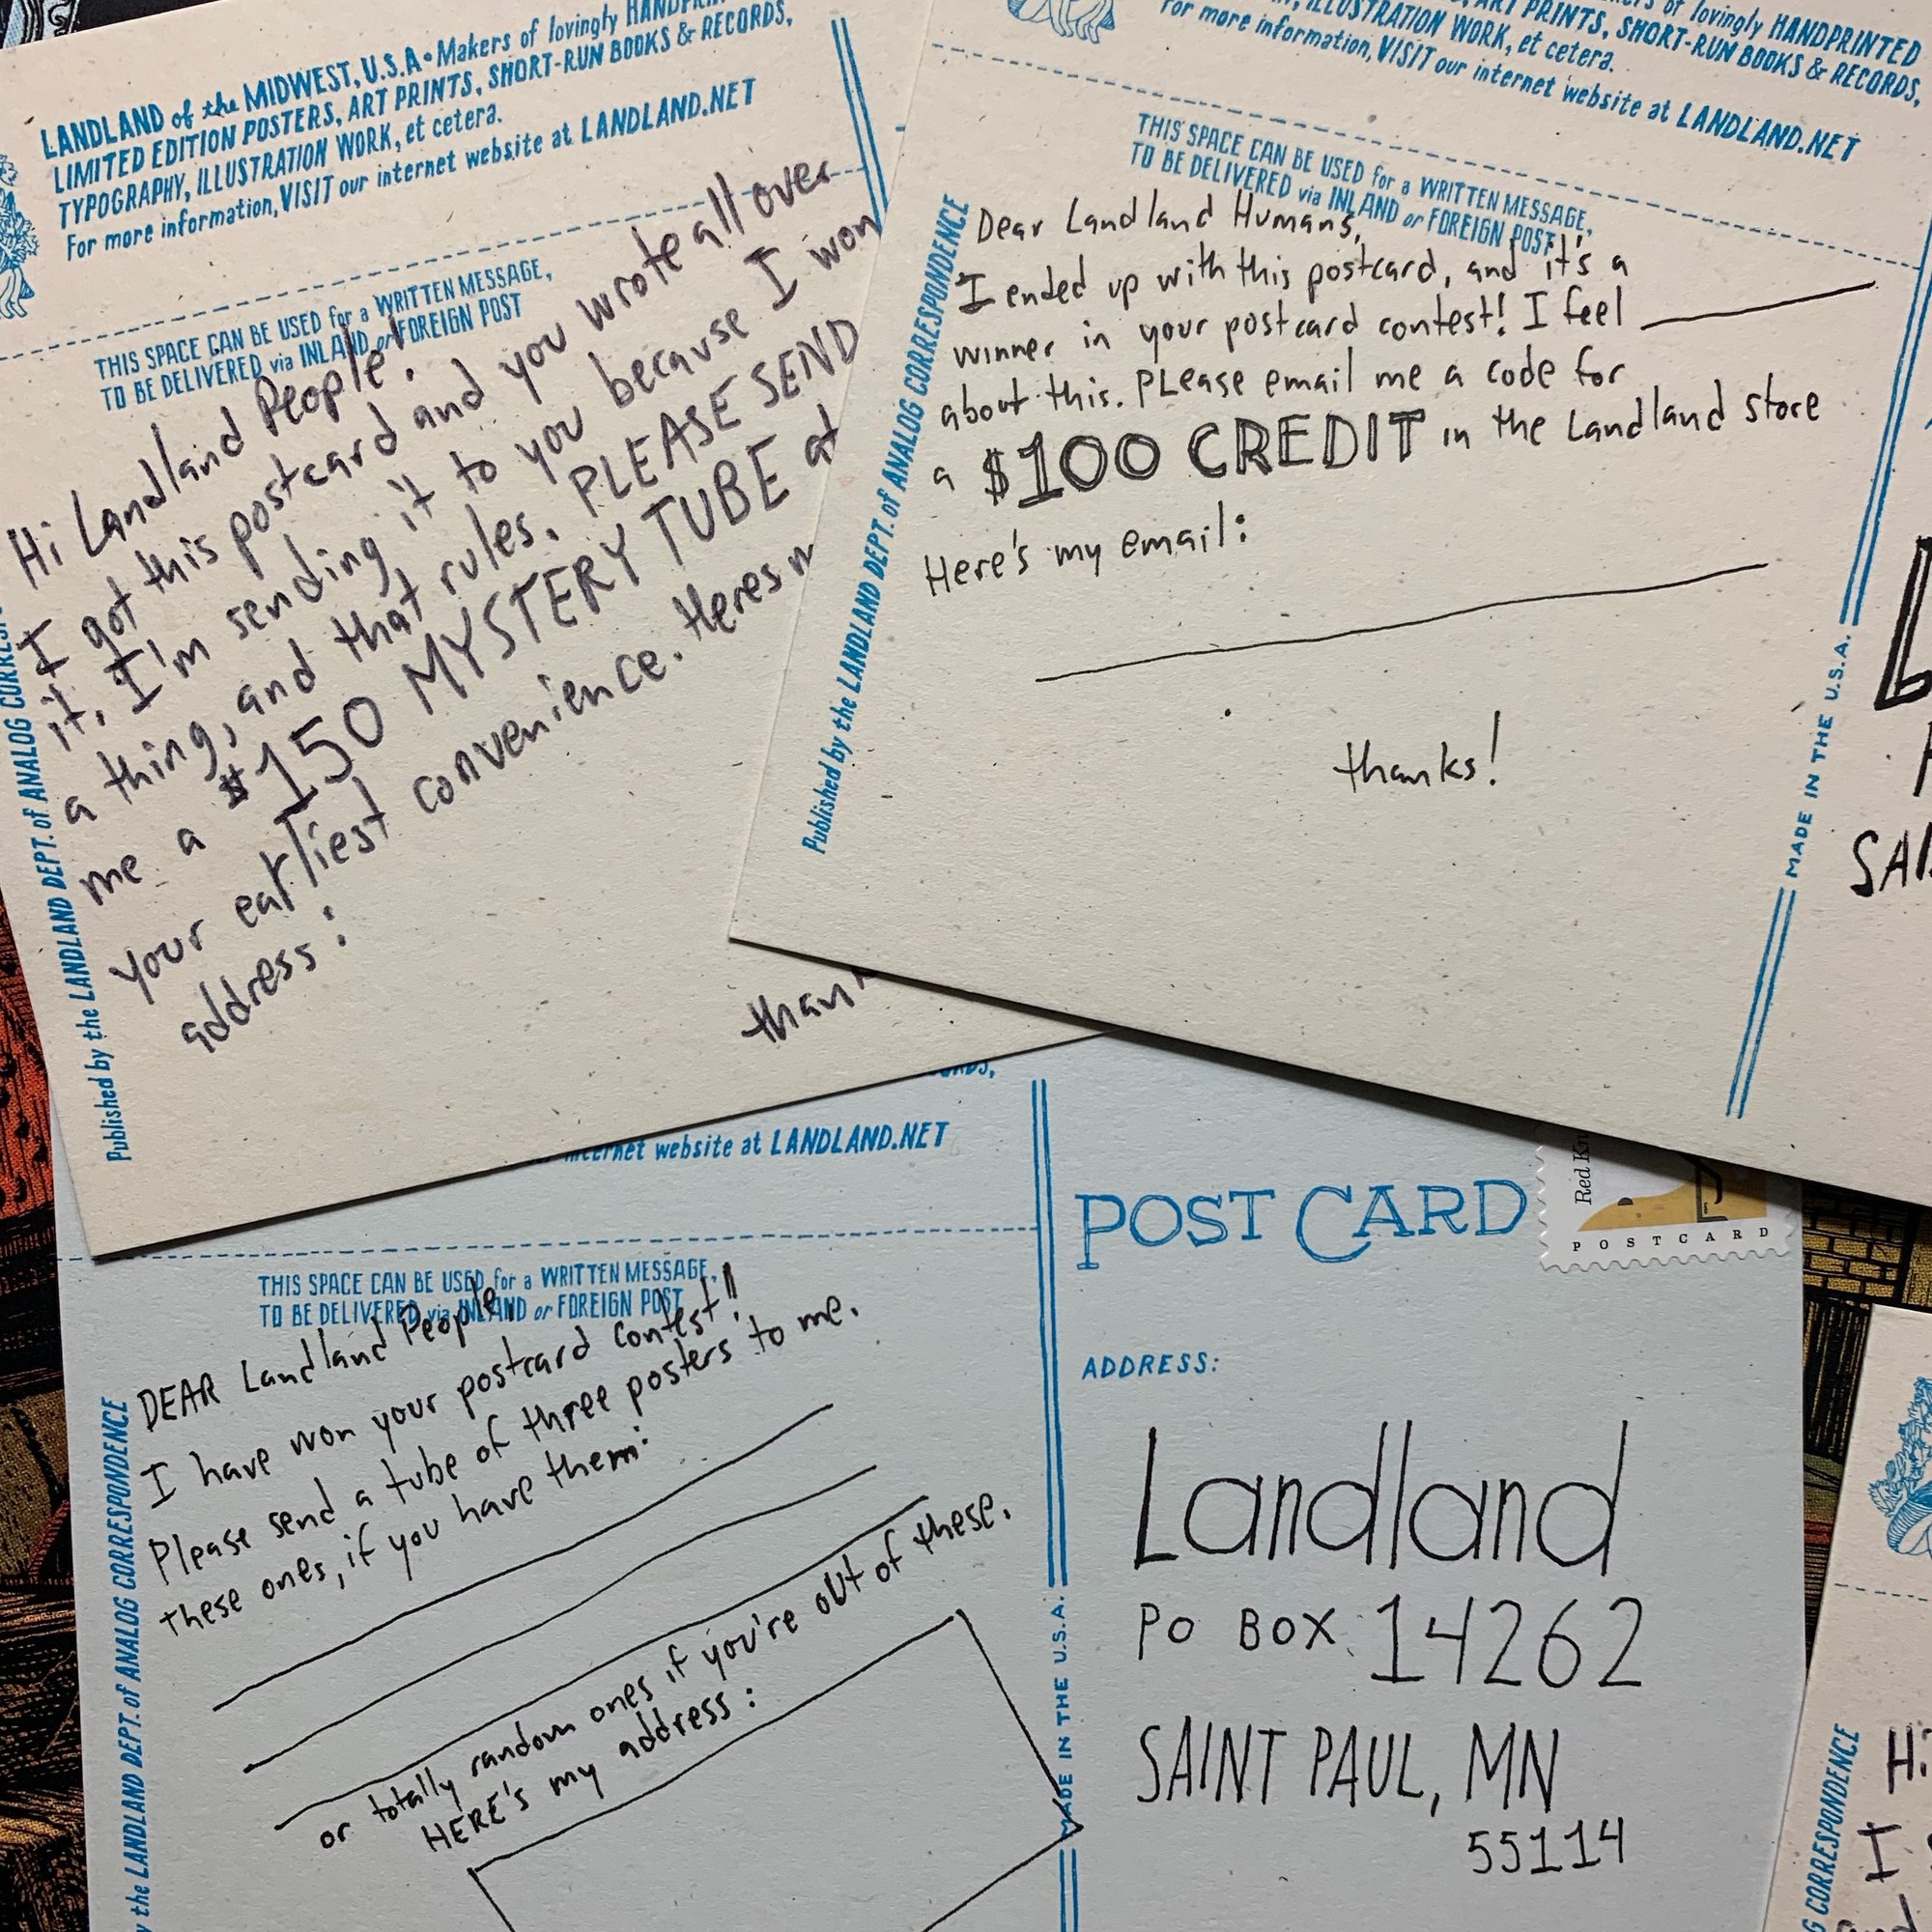 LANDLAND of the MIDWEST, U.S.A • Makers of lovingly
LIMITED EDITION POSTERS, ART PRINTS, SHORT-RUN BOOKS & RECORDS,
TYPOGRAPHY, ILLUSTRATION WORK, et cetera.
For more information, VISIT our internet website at LANDLAND.NET
THIS SPACE CAN BE USED for a WRITTEN MESSAGE,
TO BE DELIVERED via INLAND or FOREIGN POST
Hi Landland People!
I got this postcard and you wrote all over
it, I'm sending it to you because I won
a thing, and that rules. PLEASE SEND
me a $150 MYSTERY TUBE at
your earliest convenience. Heres
address:
than
Published by the LANDLAND DEPT. of ANALOG
of lovingly HANDPRINTED
ART PRINTS, SHORT-RUN BOOKS & RECORDS,
ILLUSTRATION WORK, et cetera.
For more information, VISIT our internet website at LANDLAND.NET
THIS SPACE CAN BE USED for a WRITTEN MESSAGE,
TO BE DELIVERED via INLAND or FOREIGN POST
Dear Landland Humans,
I ended up with this postcard, and it's a
winner in your postcard contest! I feel
about this. PLease email me a code for
a $100 CREDIT in the Landland store
Here's my email:
thanks!
Published by the LANDLAND DEPT. of ANALOG CORRESPONDENCE
MADE IN THE U.S.A.
L
SAI
website at LANDLAND.NET
THIS SPACE CAN BE USED for a WRITTEN MESSAGE,
TO BE DELIVERED via INLAND or FOREIGN POST
DEAR Landland People,
I have won your postcard contest!!
Please send a tube of three posters to me.
these ones, if you have them:
or totally random ones if you're out of these.
HERE's my address:
the LANDLAND DEPT. of ANALOG CORRESPONDENCE
MADE IN THE U.S.A.
POST CARD
Red Kn
POSTCARD
ADDRESS:
Landland
PO BOX 14262
SAINT PAUL, MN
55114
CORRESPONDENCE
Hi
I